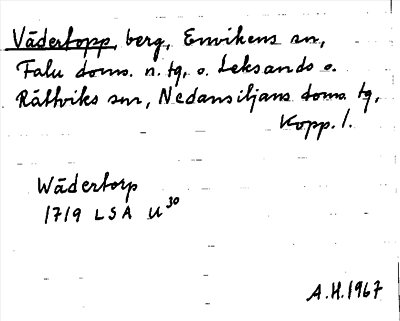 Vädertopp, berg, Envikens sn,
Falu doms. n. tg, o. Leksands o.
Rättviks snr, Nedansiljans doms. tg,
Kopp. l.
Wädertorp
1719 LSA U30
A.H. 1967